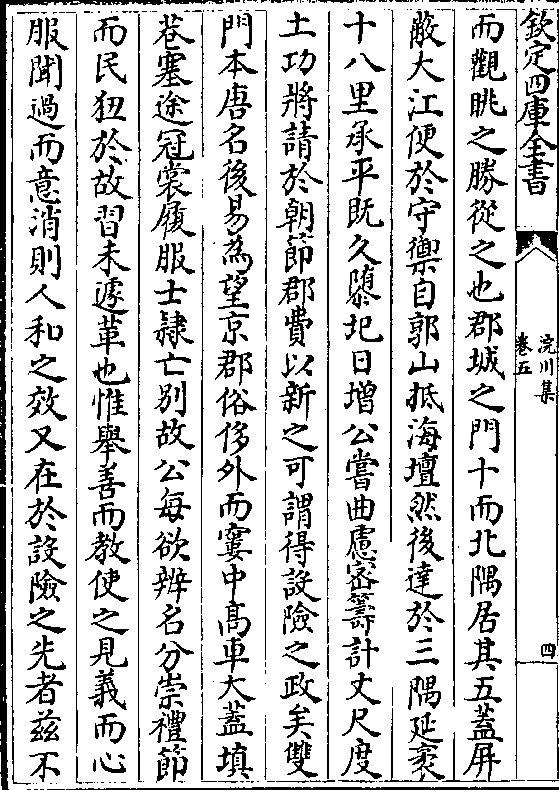 欽定四庫全書
浣川集
卷五
四
而觀眺之勝從之也郡城之門十而北隅居其五蓋屏
敝大江便於守禦自郭山抵海壇然後達於三隅延袤
十八里承平既久隳圮日增公嘗曲慮宻籌計丈尺度
土功將請於朝節郡費以新之可謂得設險之政矣雙
門本唐名後易為望京郡俗侈外而窶中髙車大蓋填
巷塞途冠裳履服士隸亡别故公每欲辨名分崇禮節
而民狃於故習未遽革也惟舉善而教使之見義而心
服聞過而意消則人和之效又在於設險之先者兹不